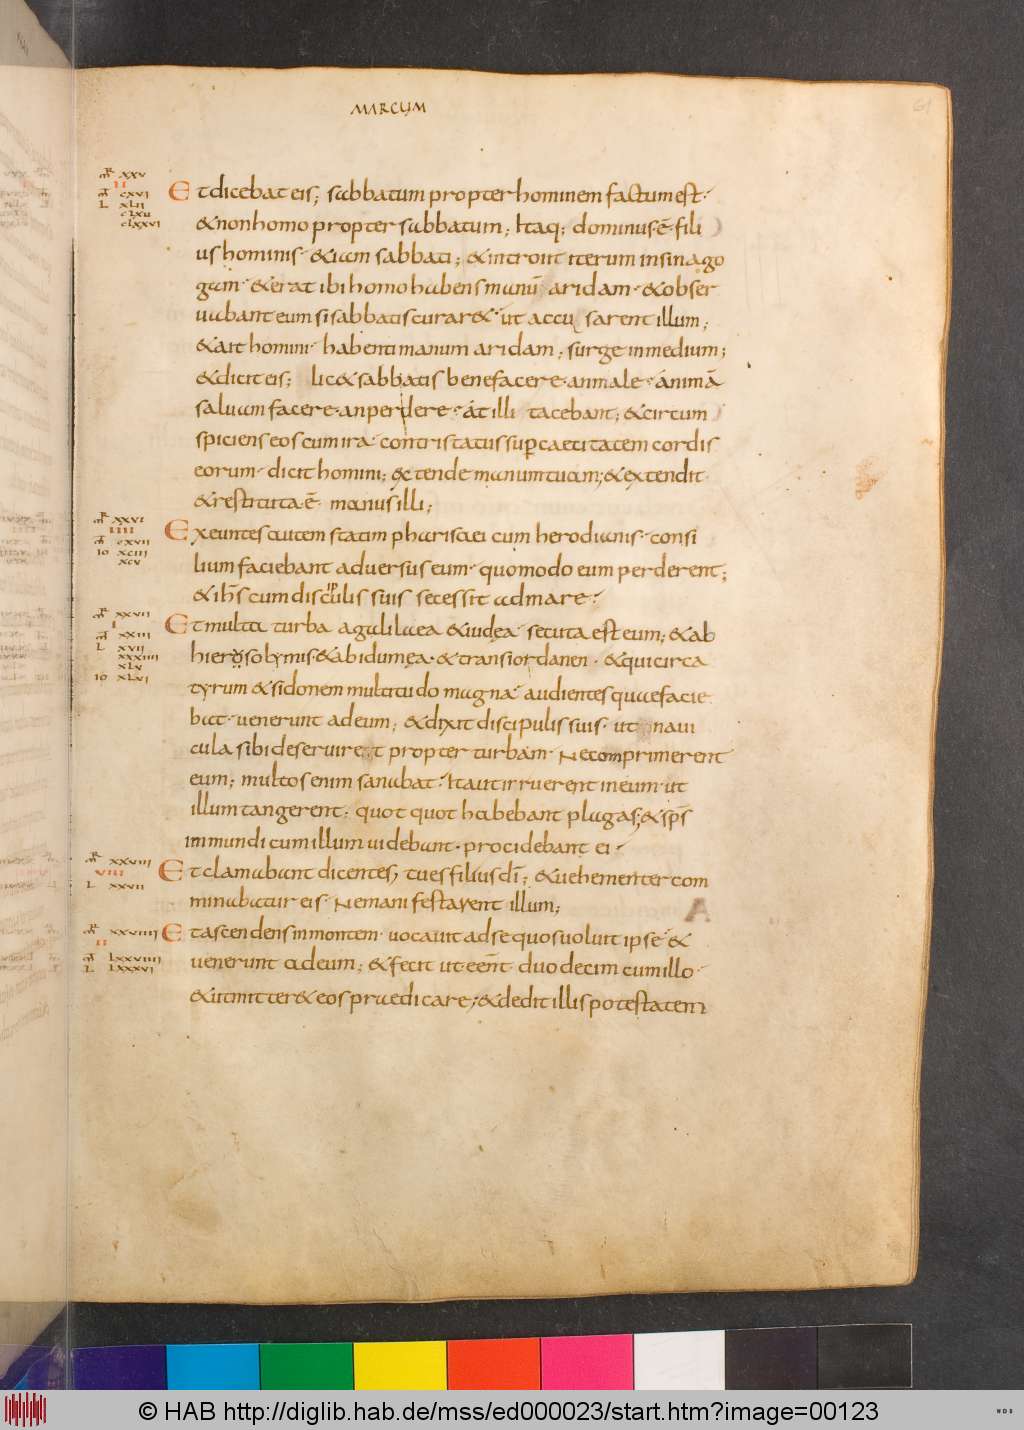 MARCUM
61
mr̄ xxv
II
mt̄ cxvi
L xlii
clxu
clxxvi
Et dicebat eis; sabbatum propter hominem factum est·
& non homo propter sabbatum; Itaq; dominus ē fili
us hominis & iam sabbati; & introiit iterum in sinago
gam· & erat ibi homo habens manū aridam· & obser
uabant eum si sabbatis curar& ut accu sarent illum;
& ait homini habenti manum aridam; surge in medium;
& dicit eis; lic& sabbatis benefacere· an male· animā
saluam facere· an perdere· at illi tacebant; & circum
spiciens eos cum ira contristatus sup caecitatem cordis
eorum· dicit homini; extende manum tuam; & extendit·
& restituta ē manus illi;
mr̄ xxvi
IIII
mt̄ cxvii
io xciii
xcv
Exeuntes autem statim pharisaei cum herodianis· consi
lium faciebant aduersus eum· quomodo eum perderent;
& ih̄s cum disculis suis secessit ad mare·
mr̄ xxvii
I
mt̄ xxiii
L xvii
xxxiiii
xlv
io xlvi
Et multa turba a galilaea & iudea secuta est eum; & ab
hierosolymis & ab idumea· & trans iordanen· & qui circa
tyrum & sidonem multitudo magna audientes quae facie
bat· uenerunt ad eum; & dixit discipulis suis· ut naui
cula sibi deseruiret propter turbam· Ne comprimerent
eum; multos enim sanabat· Ita ut irruerent in eum· ut
illum tangerent; quot quot habebant plagas; & sp̄s
inmundi cum illum uidebant· procidebant ei·
mr̄ xxviii
VIII
L xxvii
Et clamabant dicentes, tu es filius dī; & uehementer com
minabatur eis· Ne manifestarent illum;
mr̄ xxviiii
II
mt̄ lxxviiii
L lxxxvi
Et ascendens in montem· uocauit ad se quos uoluit ipse &
uenerunt ad eum; & fecit ut eēnt· duodecim cum illo·
& ut mitter& eos praedicare; & dedit illis potestatem
© HAB http://diglib.hab.de/mss/ed000023/start.htm?image=00123
WDB